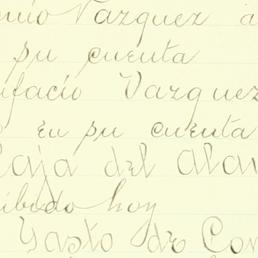 Vazquez a
su cuenta
ifacio Vazquez
En su cuenta
Caja del Alav
ibido hoy
Gasto de Con